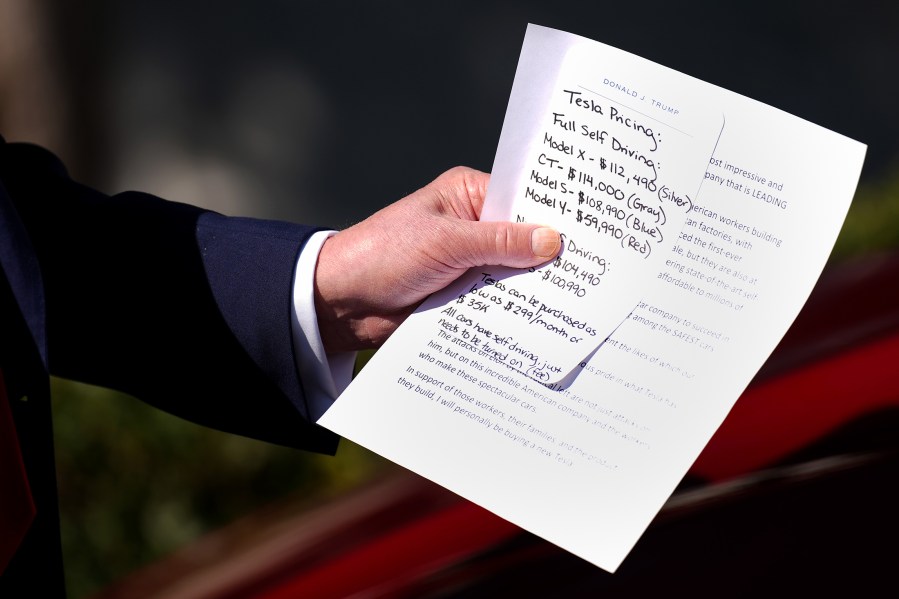 DONALD J. TRUMP
Tesla Pricing:
Full Self Driving:
Model X - $112,490 (Silver)
CT - $114,000 (Gray)
Model S - $108,990 (Blue)
Model Y - $59,990 (Red)
Driving:
$104,490
S - $100,990
Teslas can be purchased as
low as $299/month or
$35K
All cars have self driving, just
needs to be turned on (fee)
ost impressive and
pany that is LEADING
erican workers building
an factories, with
ced the first-ever
ale, but they are also at
ering state-of-the-art self
affordable to millions of
ar company to succeed in
among the SAFEST cars
ent the likes of which our
is pride in what Tesla has
The attacks on
al left are not just attacks on
him, but on this incredible American company and the workers
who make these spectacular cars.
In support of those workers, their families, and the product
they build, I will personally be buying a new Tesla